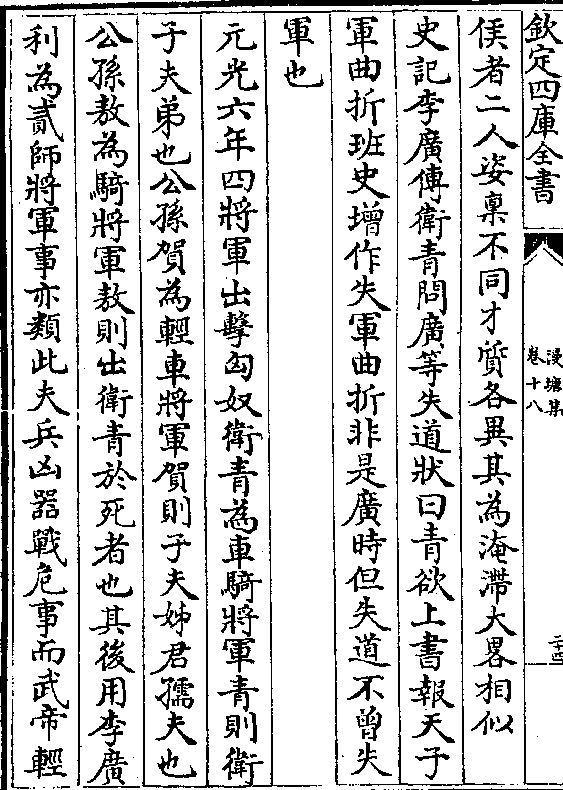 欽定四庫全書
漫塘集
卷十八
二十四
侯者二人姿稟不同才質各異其為淹滯大畧相似
史記李廣傳衛青問廣等失道狀曰青欲上書報天子
軍曲折班史增作失軍曲折非是廣時但失道不曾失
軍也
元光六年四將軍出擊匈奴衛青為車騎將軍青則衛
子夫弟也公孫賀為輕車將軍賀則子夫姊君孺夫也
公孫敖為騎將軍敖則出衛青於死者也其後用李廣
利為貳師將軍事亦類此夫兵凶器戰危事而武帝輕